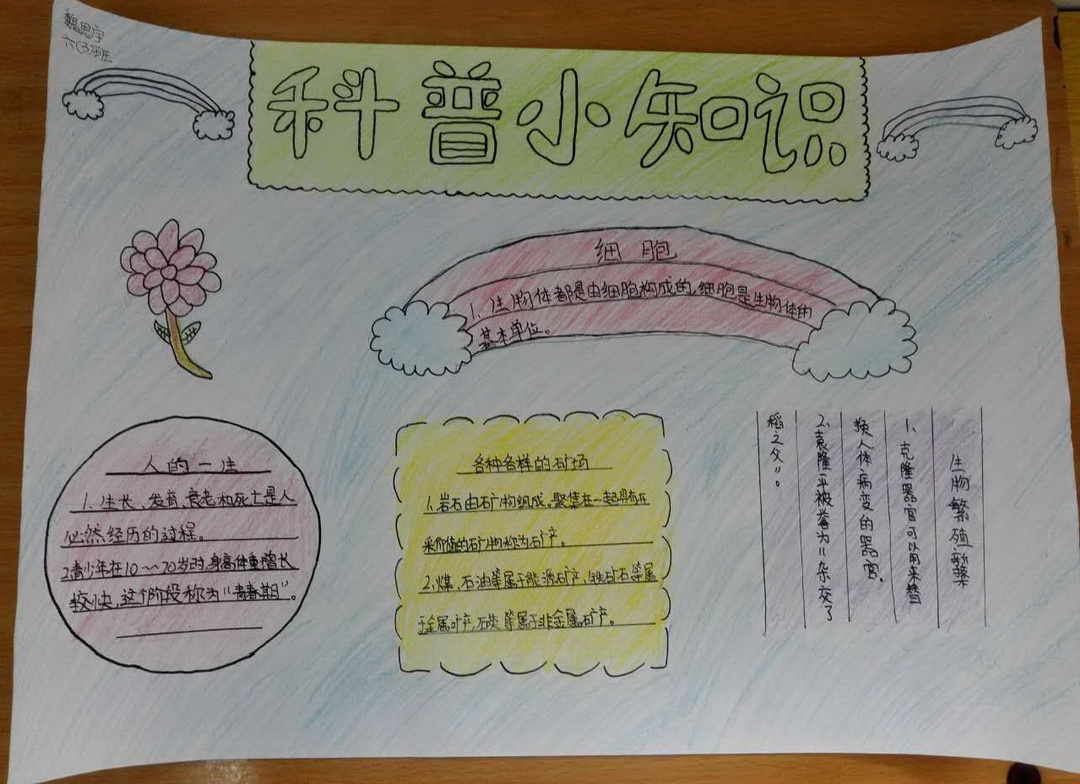 魏思宇
六(3)班
科普小知识
细胞
1.生物体都是由细胞构成的,细胞是生物体的
基本单位。
人的一生
1.生长、发育、衰老和死亡是人
必然经历的过程。
2青少年在10~20岁时,身高体重增长
较快,这个阶段称为“青春期”。
各种各样的矿场
1.岩石由矿物组成。聚集在一起具有开
采价值的矿物称为矿产。
2.煤、石油等属于能源矿产,铁矿石等属
于金属矿产,石炭等属于非金属矿产。
生物繁殖
1、克隆器官可以用来替
换人体病变的器官。
2.袁隆平被誉为“杂交了
稻之父”。